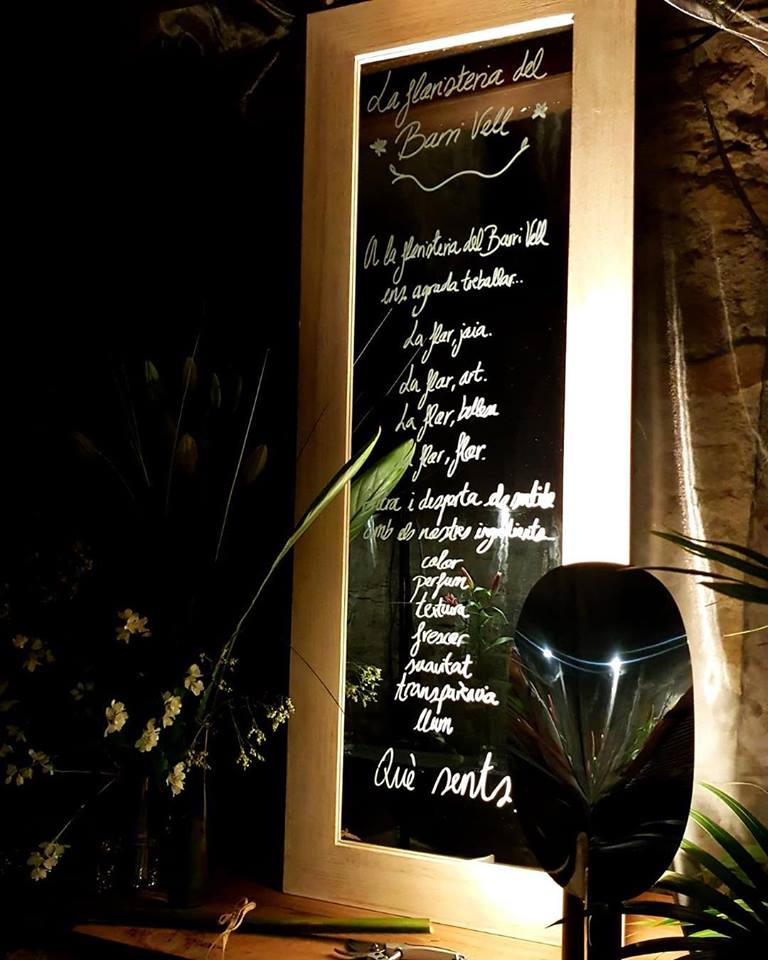 La floristeria del
Barri Vell
A la floristeria del Barri Vell
ens agrada treballar...
La flor, joia.
La flor, art.
La flor, bellesa
flor, flor.
i desperta els sentits
amb els nostres ingredients
color
perfum
textura
frescor
suavitat
transparència
llum
Què sents